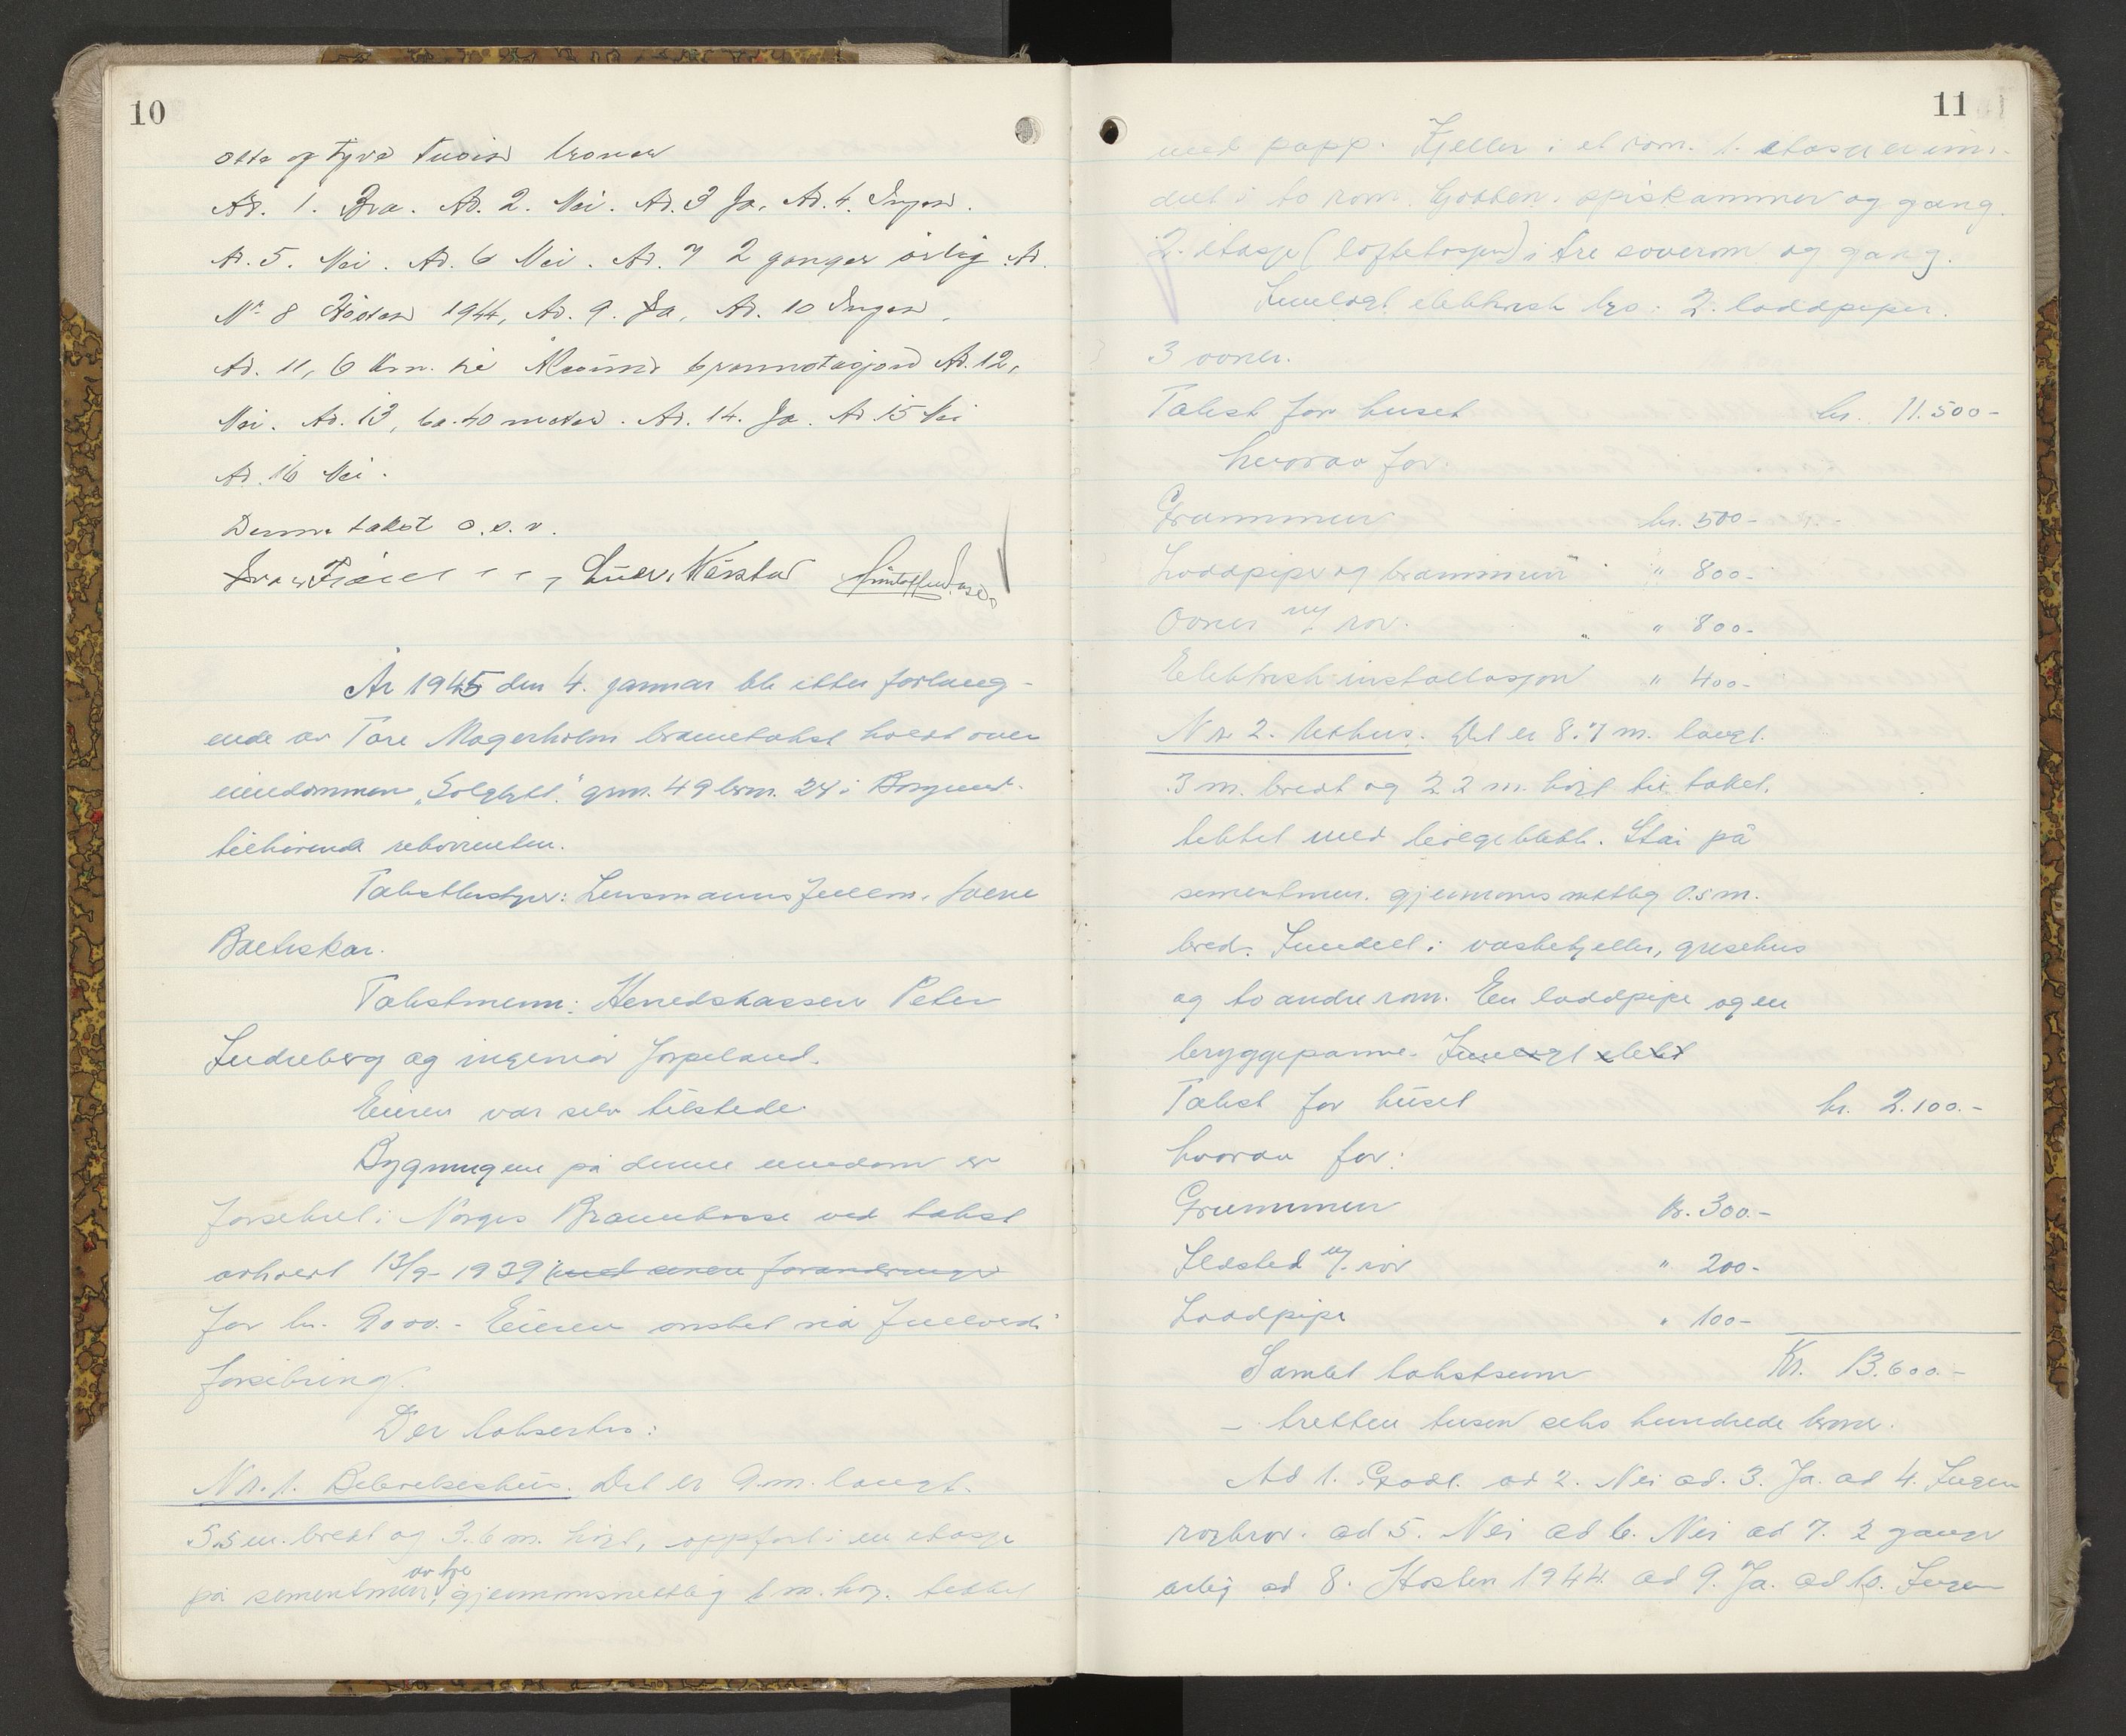 10
otte og tyve tusen kroner
Ad. 1. Bra. Ad. 2. Nei. Ad. 3 Ja. Ad. 4. Ingen.
Ad. 5. Nei. Ad. 6 Nei. Ad. 7 2 ganger årlig Ad.
Nr 8 Høsten 1944, Ad. 9. Ja, Ad. 10 Ingen,
Ad. 11, 6 km. til Ålesund brannstasjon Ad. 12,
Nei. Ad. 13, ca. 40 meter. Ad. 14. Ja. Ad. 15 Nei
Ad. 16 Nei.
Denne takst o.s.v.
År 1945 den 4. januar ble etter forlang-
ende av Tore Magerholm branntakst holdt over
eiendommen „Solglytt." gnr. 49 brnr. 24 i Borgund.
tilhørende rekvirenten.
Takstbestyrer: Lensmannsfullm.
Baltiskar.
Takstmenn: Herredskasserer Peter
Indreberg og ingeniør Jørpeland.
Eieren var selv tilstede.
Bygningene på denne eiendom er
forsikret i Norges Brannkasse ved takst
avholdt 13/9- 1939 (med senere forandringer
for kr. 9000.- Eieren ønsket nå fullverdi
forsikring.
Der takseres:
Nr. 1. Beboelseshus. Det er 9 m. langt.
5.5 m. bredt og 3.6 m. høgt, oppført i en etasje
av tre
på sementmur, gjennomsnittlig 1 m. høg. tekket
11
med papp. Kjeller i et rom. 1. etasje er inn-
delt i to rom. kjøkken, spiskammer og gang.
2. etasje (loftetasjen) i tre soverom og gang.
Innlagt elektrisk lys. 2. loddpiper.
3 ovner.
Takst for huset kr. 11.500-
hvorav for.
Grunnmur kr. 500-
Loddpipe og brannmur " 800-
Ovner m/ rør. " 800-
Elektrisk installasjon " 400-
Nr 2. Uthus. Det er 8.7 m. langt.
3 m. bredt og 2.2 m. høgt til taket.
tekket med bølgeblekk. Står på
sementmur. gjennomsnittlig 0.5 m.
bred. Inndelt i vaskekjeller, grisehus
og to andre rom. En loddpipe og en
bryggepanne. Innlagt elekt
Takst for huset kr. 2.100.-
hvorav for:
Grunnmur kr. 300.-
Ildsted m/. rør " 200-
Loddpipe " 100-
Samlet takstsum Kr. 13.600.-
- tretten tusen seks hundrede kroner.
Ad 1. Godt. ad 2. Nei ad. 3. Ja. ad 4. Ingen
røykrør. ad 5. Nei ad 6. Nei ad 7. 2 ganger
årlig ad 8. Høsten 1944. ad 9. Ja. ad 10. Ingen